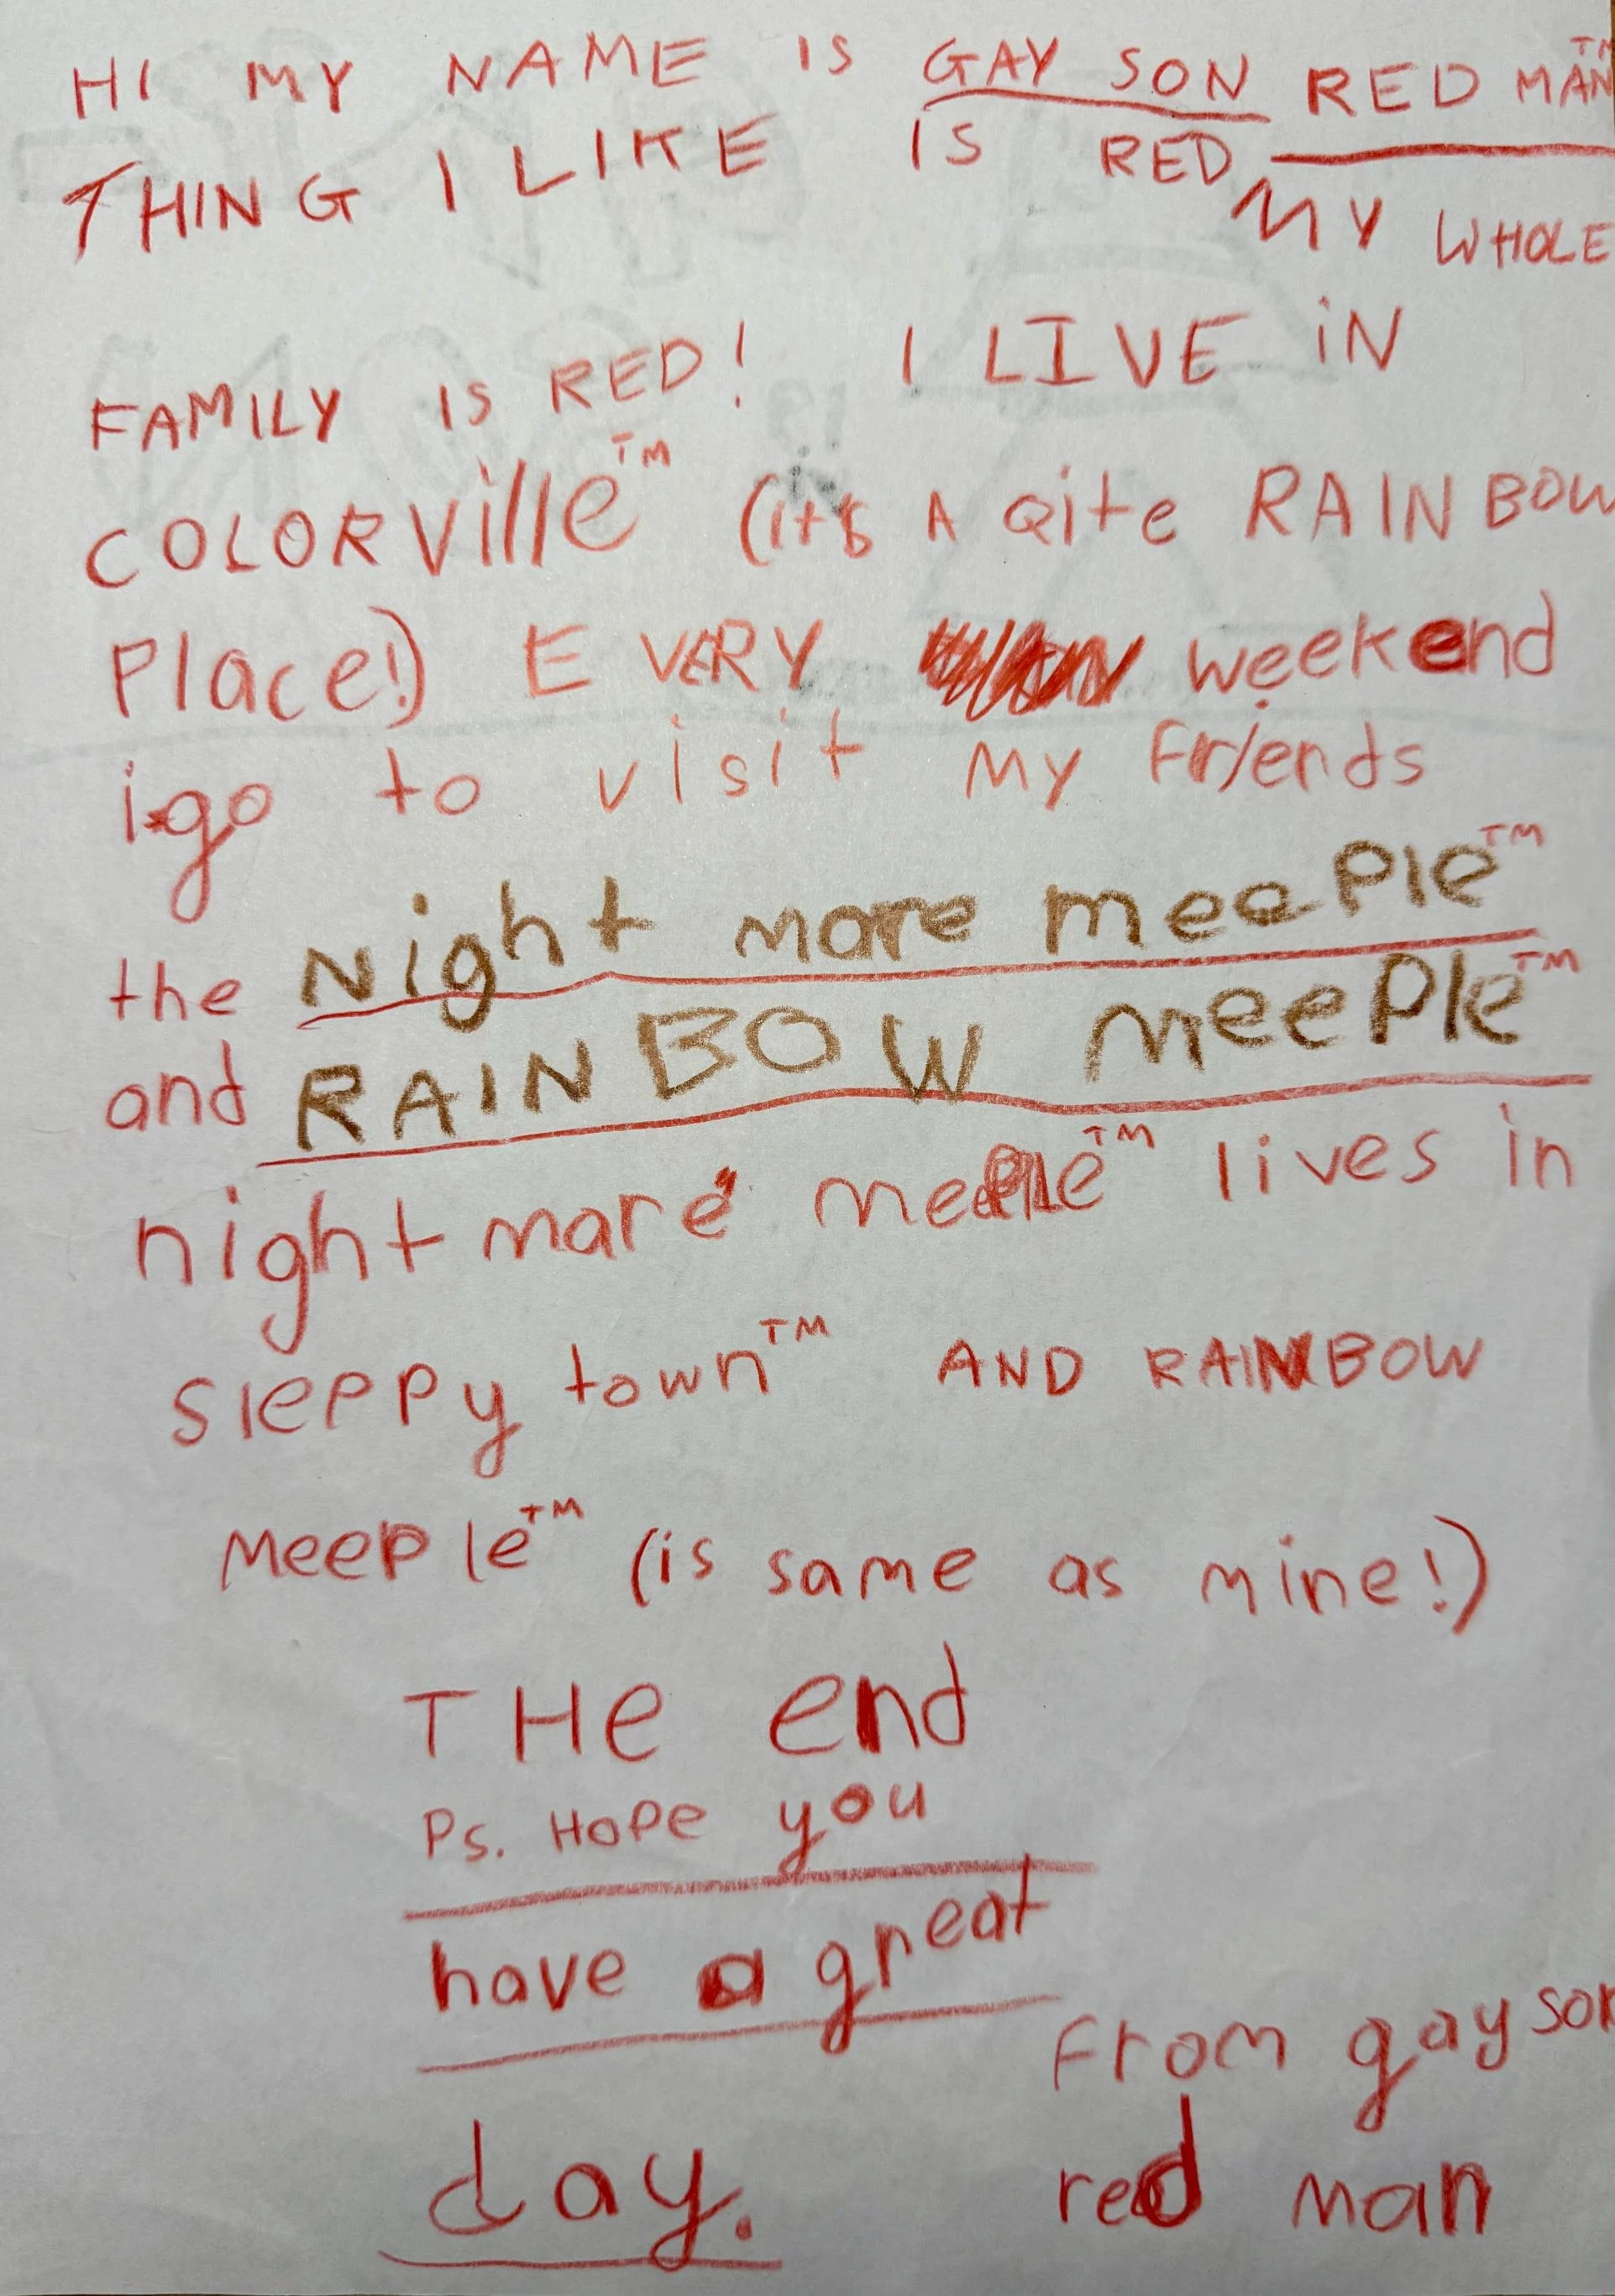 HI MY NAME IS GAY SON RED MAN™
THING I LIKE IS RED MY WHOLE
FAMILY IS RED! I LIVE iN
COLORVille™ (it's A Qite RAINBOW
Place!) EVERY weekend
i go to visit My Friends
the Night mare meePle™
and RAINBOW MeePle™
night mare mePle™ lives in
SlePPy town™ AND RAINBOW
MeePle™ (is same as mine!)
THe end
Ps. HoPe you
have a great
day.
From gay son
red man